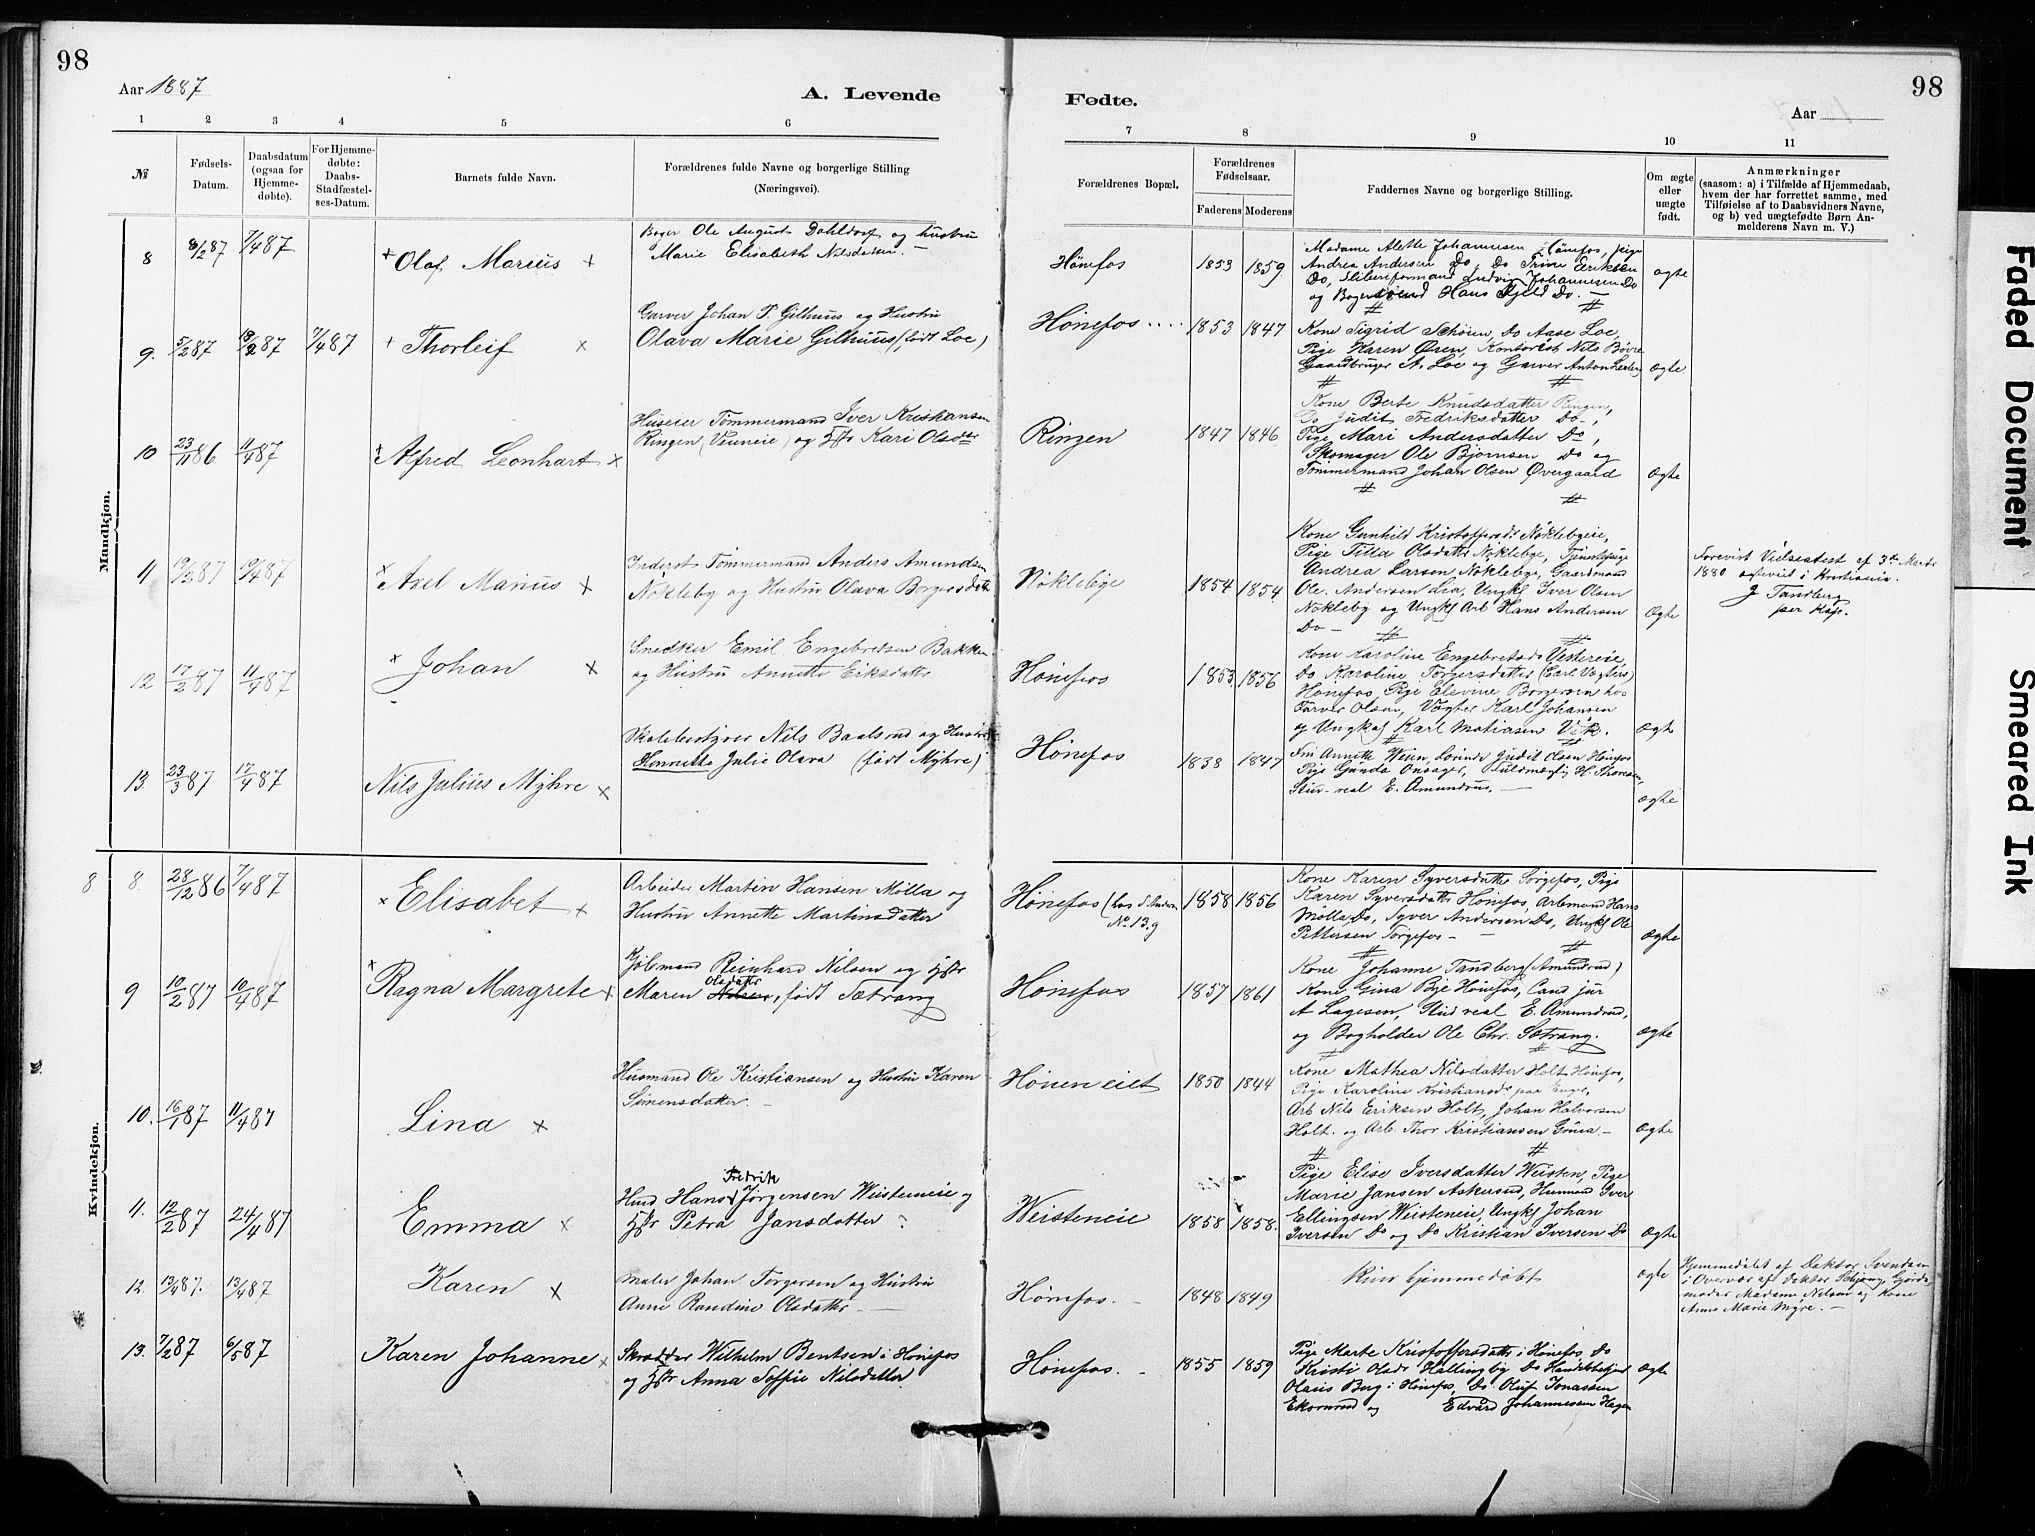 98
98
Aar 1887
A. Levende
Fødte.
Aar
1 2 3 4 5 6 7 8 9 10 11
№
Fødsels-
Datum.
Daabsdatum
(ogsaa for
Hjemme-
døbte).
For Hjemme-
døbte:
Daabs-
Stadfæstel-
ses-Datum.
Barnets fulde Navn.
Forældrenes fulde Navne og borgerlige Stilling
(Næringsvei).
Forældrenes Bopæl.
Forældrenes
Fødselsaar.
Faderens Moderens
Faddernes Navne og borgerlige Stilling.
Om ægte
eller
uægte
født.
Anmærkninger
(saasom: a) i Tilfælde af Hjemmedaab,
hvem der har forrettet samme, med
Tilføielse af to Daabsvidners Navne,
og b) ved uægtefødte Børn An-
melderens Navn m. V.)
Mandkjøn.
8 7/487 Olaf Marius
Bager Ole August Dahldorf og hustru
Marie Elisabeth Nilsdatter.
Hønefos 1853 1859
Madame Alette Johannesen Hønefos, pige
Andrea Andersen Do, Do Trine Eriksen
Do, Sliberiformand Ludvig Johannesen Do
og Bagersvend Hans Kjeld Do. ægte
9. 5/287 13/287 7/487 Thorleif
Garver Johan P. Gilhuus og Hustru
Olava Marie Gilhuus (født Loe)
Hønefos 1853 1847
Kone Sigrid Schøien, Do Aase Loe,
Pige Karen Øren, Kontorist Nils Bøvre
Gaardbruger A. Loe og Garver Anton ægte
10 23/1186 11/487 Alfred Leonhart
Huseier Tømmermand Iver Kristiansen
Ringen og Hstr Kari Olsdtr
Ringen 1847 1846
Kone Berte Knudsdatter Ringen,
Do Judit Fredriksdatter Do,
Pige Mari Andersdatter Do,
Skomager Ole Bjørnsen Do og
Tømmermand Johan Olsen Øvergaard ægte
11 19/287 10/487 Axel Marius
Inderst Tømmermand Anders Amundsen
Nøkleby og Hustru Olava Borgersdatr
Nøklebye 1854 1854
Kone Gunhild Kristoffersdr Nøklebyeie,
Pige Tilla Olsdatter Nøklebye, Tjenestepige
Andrea Larsen Nøklebye, Gaardmand
Ole Andersen Lia, Ungk Iver Olsen
Nøkleby og Ungk Arb Hans Andersen
Do ægte
Forevist Vielsesattest af 3die Marts
1880 i Kristiania.
J Tandberg
per Kap.
12 17/287 11/487 Johan
Snedker Emil Engebretsen Bakken
og Hustru Annette Eriksdatter
Hønefos 1853 1856
Kone Karoline Engebretsd Vestereie,
Do Karoline Torgersdatter (Carl Vægters)
Hønefos, Pige Elevine Borgersen hos
Farver Olsen, Vægter Karl Johansen
og Ungkarl Karl Matiasen Vik. ægte
13. 23/387 17/487 Nils Julius Myhre
Skolebestyrer Nils Baalsrud og Hustru
Henriette Julie Olava (født Myhre)
Hønefos 1838 1847
Fru Annette Wiun, Judit Olsen Hønefos
Pige Gunda Onsager, Fuldmægtig H. Thoresen,
Stud. real E. Amundrud. ægte
Kvindekjøn.
8 8. 28/1286 7/487 Elisabet
Arbeider Martin Hansen Mølla og
Hustru Annette Martinsdatter
Hønefos (hos
No 13.g 1858 1856
Kone Karen Syversdatter Sørgefos, Pige
Karen Syversdatter Hønefos, Arbmand Hans
Mølla Do, Syver Andersen Do, Ungk Ole
Pettersen Sørgefos ægte
9 10/287 10/487 Ragna Margrete
Kjøbmand Reinhard Nilsen og Hstr
Olsdatter
Maren Nilsen, født Sætrang
Hønefos 1857 1861
Kone Johanne Tandberg (Amundrud)
Kone Gina Bye Hønefos, Cand jur
A Lagesen, Stud real E. Amundrud,
og Bogholder Ole Chr. Sætrang. ægte
10. 16/187 11/487 Lina
Husmand Ole Kristiansen og Hustru Karen
Simensdatter.
Hønen eiet 1850 1844
Kone Mathea Nilsdatter Holt Hønefos,
Pige Karoline Kristiansdr paa Enge,
Arb Nils Eriksen Holt, Johan Halvorsen
Holt. og Arb. Thor Kristiansen ægte
11. 12/287 24/487 Emma
Fredrik
Husmd Hans Jørgensen Weisteneie og
Hstr Petra Jansdatter
Weisteneie 1858 1858.
Pige Elise Iversdatter Weisten, Pige
Marie Jansen Askersud, Husmand Iver
Ellingsen Weisteneie, Ungk Johan
Iversen Do og Do Kristian Iversen Do ægte
12. 13/487. 13/487 Karen
Maler Johan Torgersen og Hustru
Anne Randine Olsdatter
Hønefos. 1848 1849
Kun hjemmedøbt ægte
Hjemmedøbt af Doktor Svendsen
i Overvær af Doktor Schjøng, Gjorde-
moder Madame Nilsen og Kone
Anne Marie Myre.
13. 7/287 6/587 Karen Johanne
Skrædder Wilhelm Bentsen i Hønefos
og Hstr Anna Soffie Nilsdatter
Hønefos. 1855 1859
Pige Marte Kristoffersdatter i Hønefos Do
Kristi Olsdr Hallingby Do Handelsbetjent
Olaus Berg i Hønefos, Do Oluf Jonassen
Ekornrud og Edvard Johannessen Hagen ægte
Faded Document
Smeared Ink